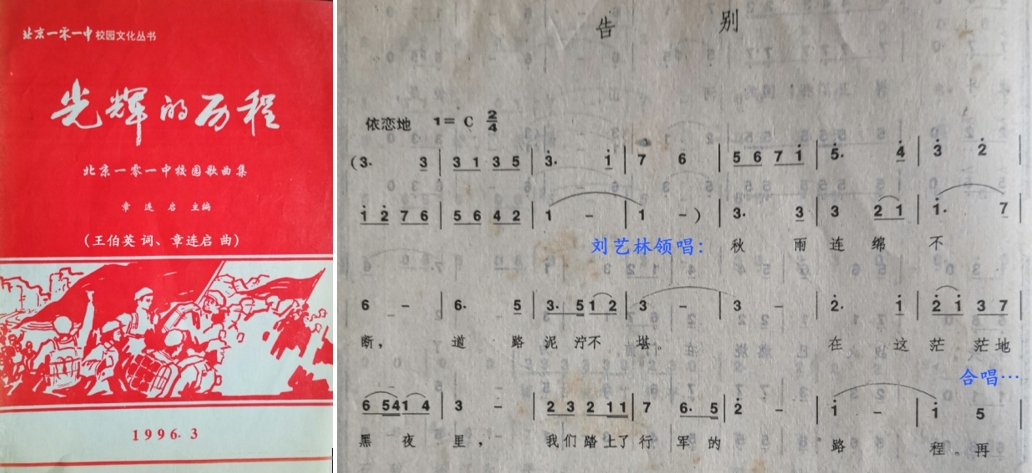 北京一零一中校园文化丛书
光辉的历程
北京一零一中校园歌曲集
章连启 主编
(王伯英 词、章连启 曲)
1996.3
告别
依恋地 1= C 2/4
(3· 3 | 3 1 3 5 | 3· i | 7 6 | 5 6 7 i | 5· 4 | 3 2 |
i 2 7 6 | 5 6 4 2 | 1 - | 1 -) | 3· 3 | 3 2 1 | 1· 7 |
刘艺林领唱: 秋 雨 连 绵 不
6 - | 6· 5 | 3· 5 1 2 | 3 - | 3 - | 2· i | 2 i 3 7 |
断, 道 路 泥 泞 不 堪。 在 这 茫 茫 地
合唱…
6 5 4 1 4 | 3 - | 2 3 2 1 1 | 7 6· 5 | 2 - | i - | i 5 |
黑 夜 里, 我们 踏 上了 行 军 的 路 程。再